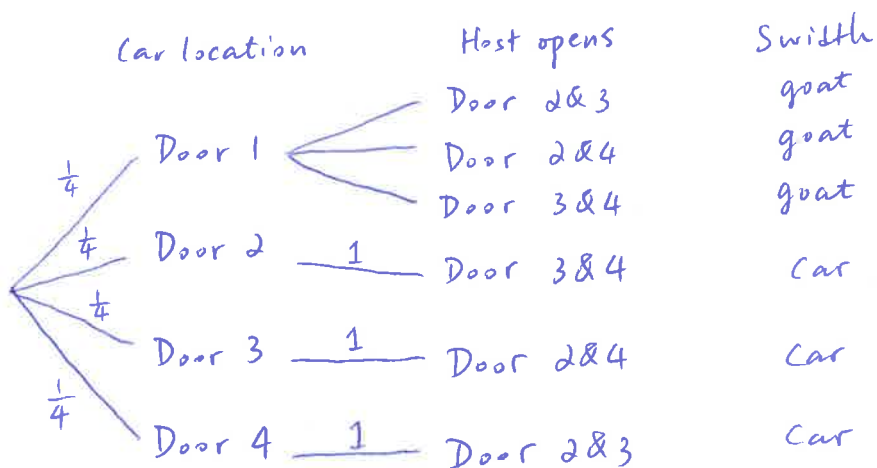 Car location Host opens Swidth
Door 2&3 goat
Door 1 Door 2&4 goat
1/4 Door 3&4 goat
1/4 Door 2 1 Door 3&4 Car
1/4
Door 3 1 Door 2&4 Car
1/4
Door 4 1 Door 2&3 Car